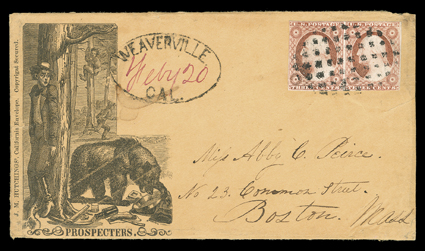 J. M. HUTCHINGS' California Envelope. Copyright Secured.
PROSPECTERS.
WEAVERVILLE
Feby 20
CAL.
U.S. POSTAGE U.S. POSTAGE
THREE CENTS THREE CENTS
Miss Abby C. Peirce.
No 23. Common Street.
Boston. Mass